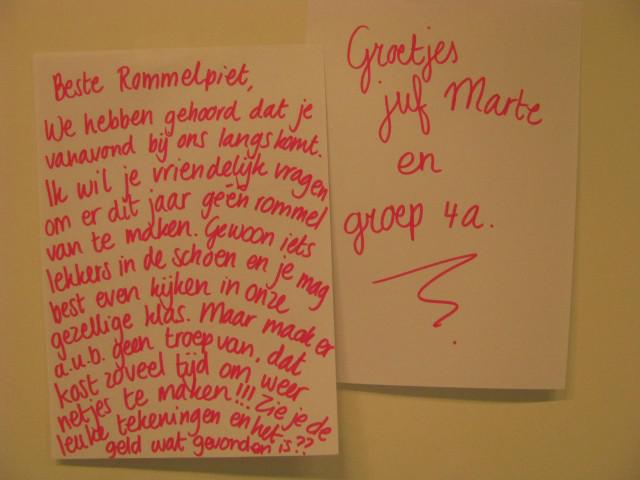 Beste Rommelpiet,
We hebben gehoord dat je
vanavond bij ons langs komt.
Ik wil je vriendelijk vragen
om er dit jaar géén rommel
van te maken. Gewoon iets
lekkers in de schoen en je mag
best even kijken in onze
gezellige klas. Maar maak er
a.u.b. geen troep van, dat
kost zoveel tijd om weer
netjes te maken!!! Zie je de
leuke tekeningen en het
geld wat gevonden is??
Groetjes
juf Marte
en
groep 4a.